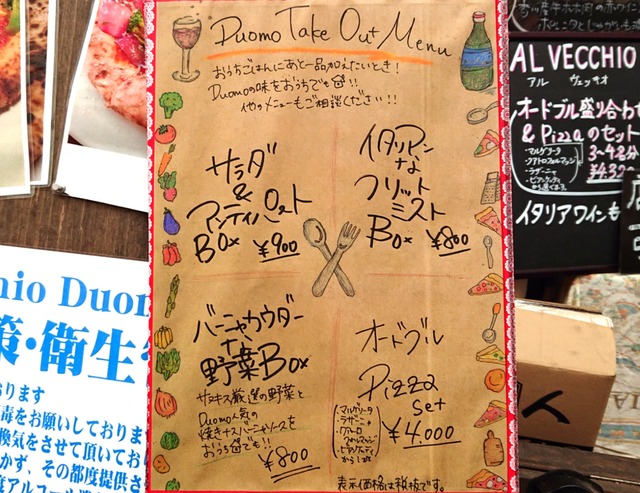 Duomo Take Out Menu
おうちごはんにあと一品加えたいとき!
Duomoの味をおうちでも!!
他のメニューもご相談ください!!
サラダ
&
アンティパスト
Box ¥900
イタリアン
な
フリット
ミスト
Box ¥800
バーニャカウダー
な
野菜Box
サヌキス厳選の野菜と
Duomo人気の
焼きバーニャソースを
おうちでも!!
¥800
オードブル
Pizza
Set
マルゲリータ
ラザーニャ
から1品
¥4.000
表示価格は税抜です。
AL VECCHIO
アル ヴェッキオ
オードブル盛り合わ
& Pizzaのセット
・マルゲリータ
・クアトロフォルマッジ
・ラザーニャ
・ビアンケッティ
から選べます。
3~4名分
イタリアワインも
hio Duom
策・衛生
おります
毒をお願いしておりま
換気をさせて頂いてお
かず、その都度提供さ
度アルコール